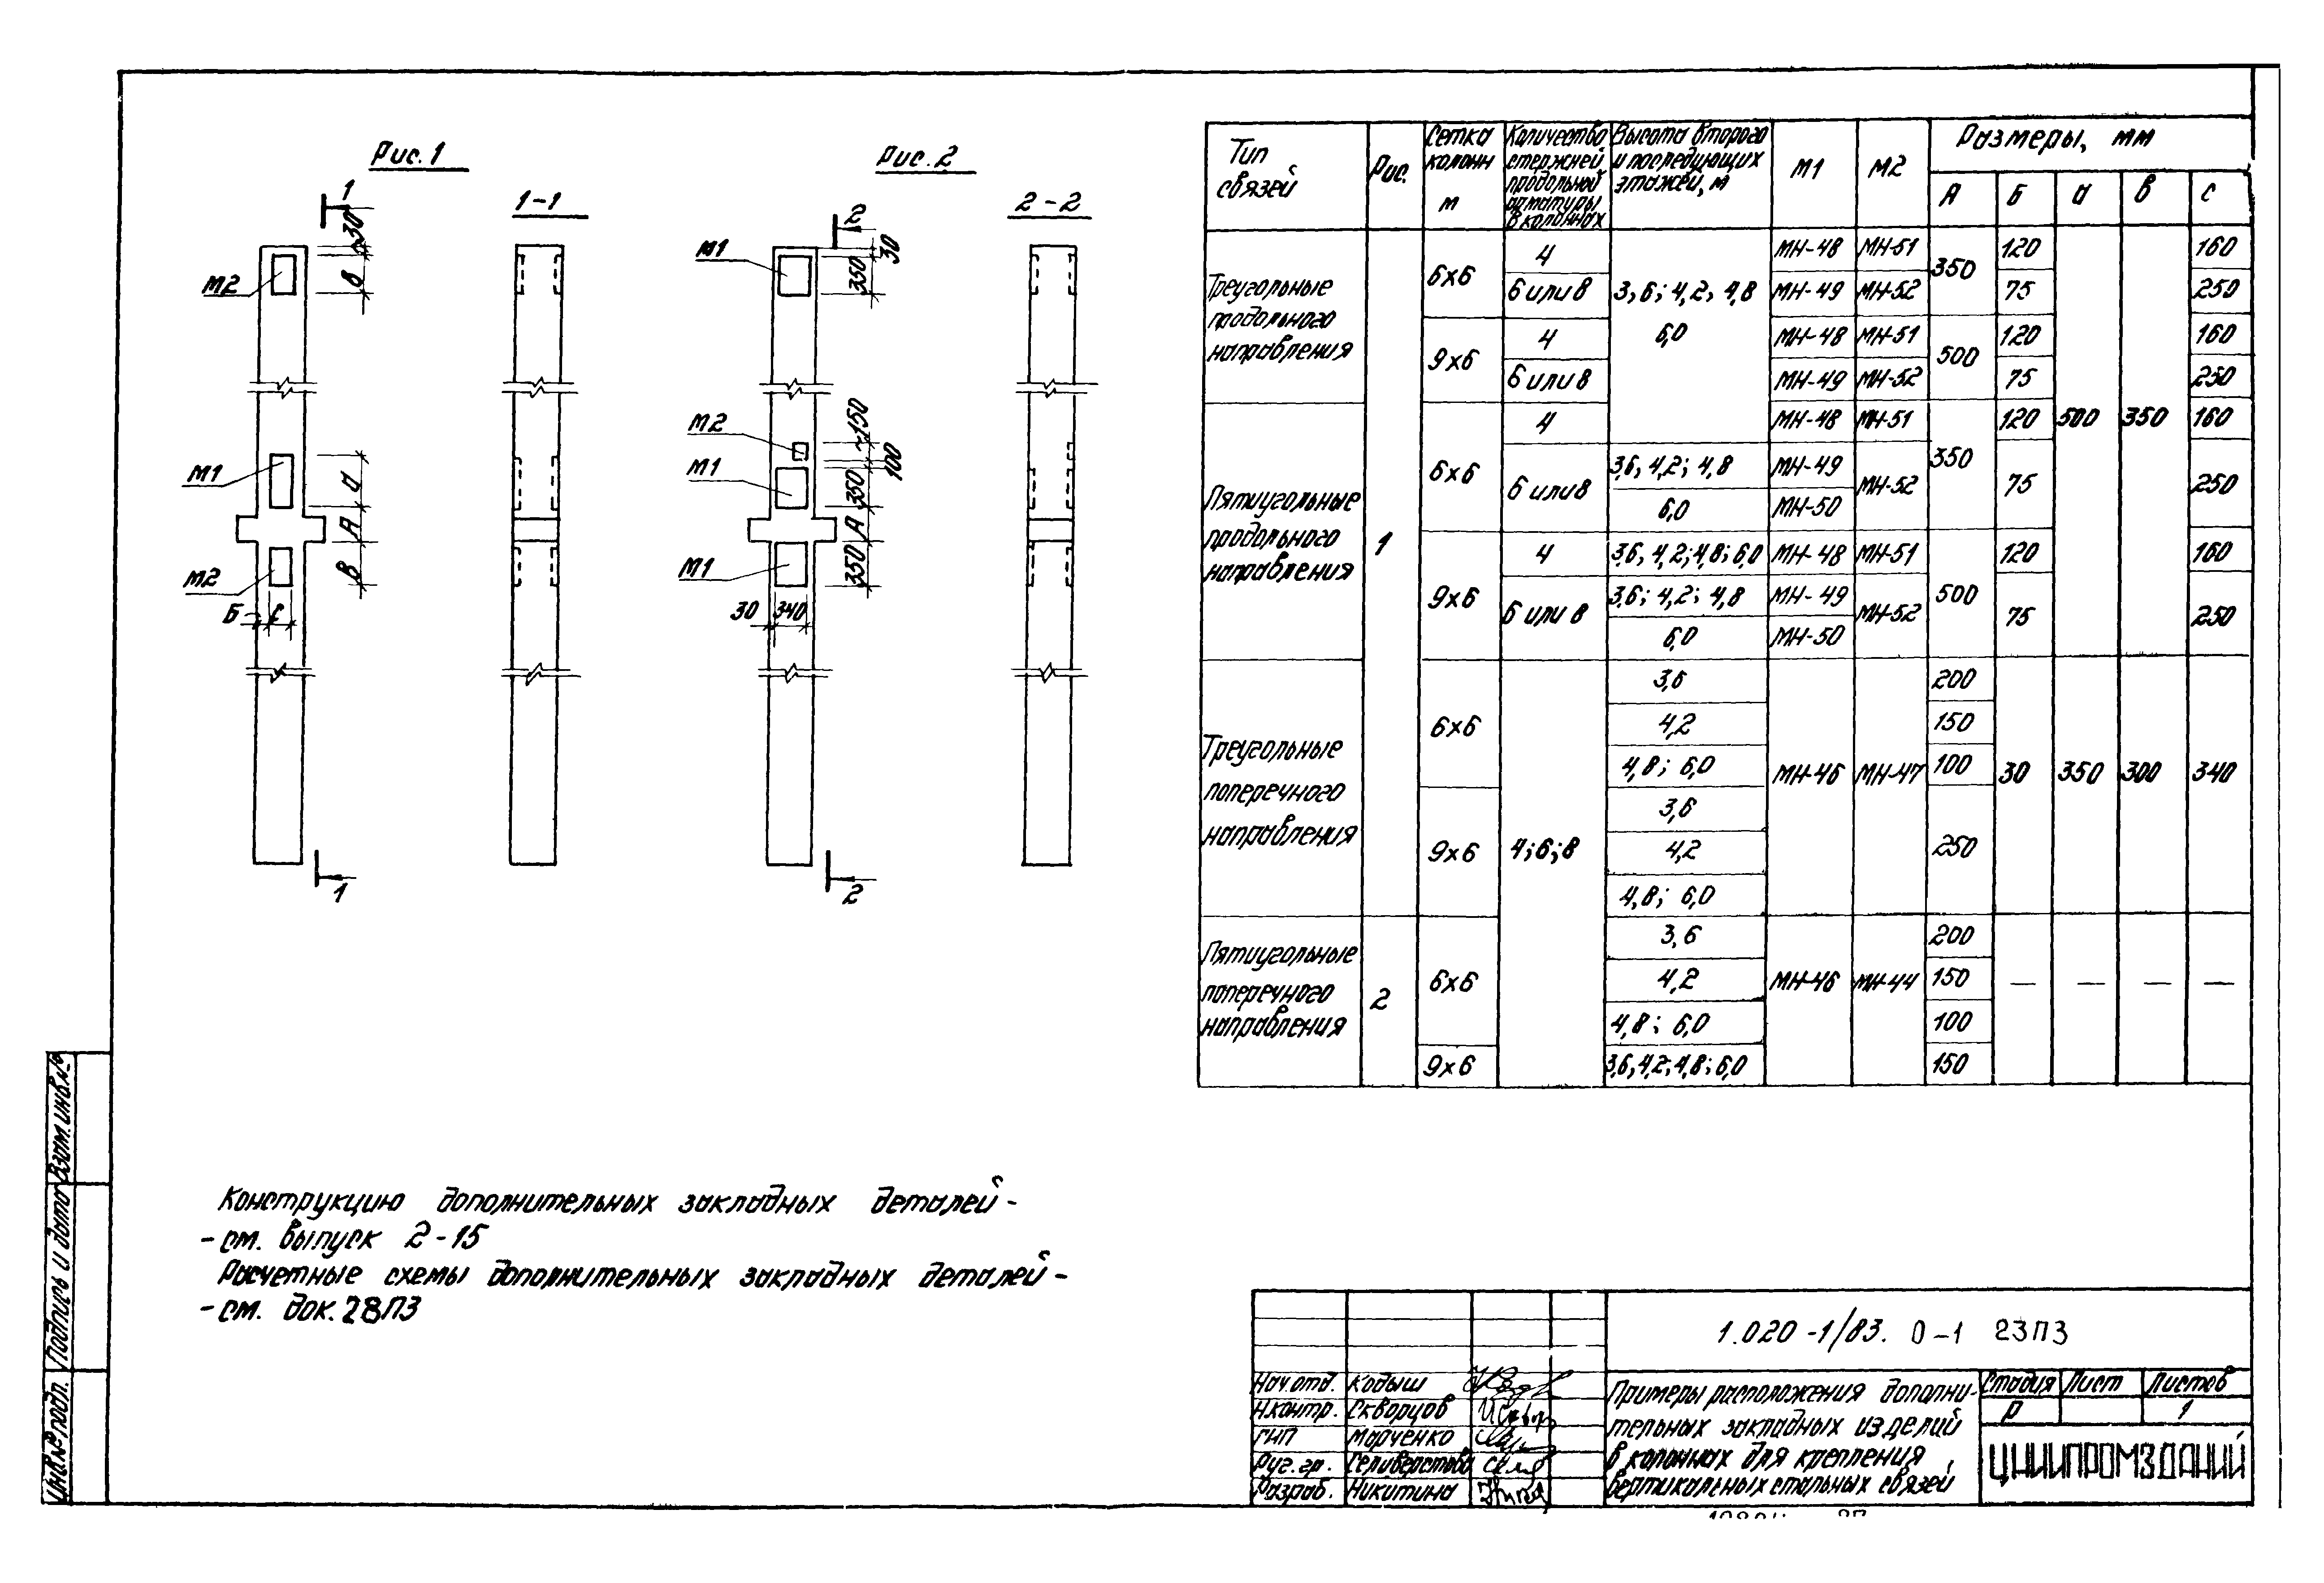 Рис. 1
Рис. 2
1-1
2-2
1
30
В
М2
М1
а
А
В
М2
Б
с
1
2
30
М1
350
М2
~150
100
М1
350
А
М1
350
30
340
2
Тип связей
Рис.
Сетка колонн м
Количество стержней продольной арматуры в колоннах
Высота второго и последующих этажей, м
М1
М2
Размеры, мм
А Б а в с
Треугольные продольного направления
1
6х6
4
3,6; 4,2; 4,8
6,0
МН-48 МН-51
350
120
160
6 или 8
МН-49 МН-52
75
250
9х6
4
МН-48 МН-51
500
120
160
6 или 8
МН-49 МН-52
75
250
Пятиугольные продольного направления
6х6
4
МН-48 МН-51
350
120 500 350 160
6 или 8
3,6; 4,2; 4,8
МН-49
МН-52
75
250
6,0
МН-50
9х6
4
3,6; 4,2; 4,8; 6,0
МН-48 МН-51
500
120
160
6 или 8
3,6; 4,2; 4,8
МН-49
МН-52
75
250
6,0
МН-50
Треугольные поперечного направления
6х6
4;6;8
3,6
200
4,2
150
4,8; 6,0
МН-46 МН-47
100
30 350 300 340
9х6
3,6
4,2
250
4,8; 6,0
Пятиугольные поперечного направления
2
6х6
3,6
200
4,2
МН-46 МН-44
150
— — — —
4,8; 6,0
100
9х6
3,6; 4,2; 4,8; 6,0
150
Конструкцию дополнительных закладных деталей -
- см. выпуск 2-15
Расчетные схемы дополнительных закладных деталей -
- см. док. 28ПЗ
Взам. инв. №
Подпись и дата
Инв. № подл.
1.020-1/83. 0-1 23ПЗ
Нач. отд. Кодыш
Н.контр. Скворцов
ГИП Марченко
Рук. гр. Селиверстова
Разраб. Никитина
Примеры расположения дополни-
тельных закладных изделий
в колоннах для крепления
вертикальных стальных связей
Стадия Лист Листов
Р 1
ЦНИИПРОМЗДАНИЙ